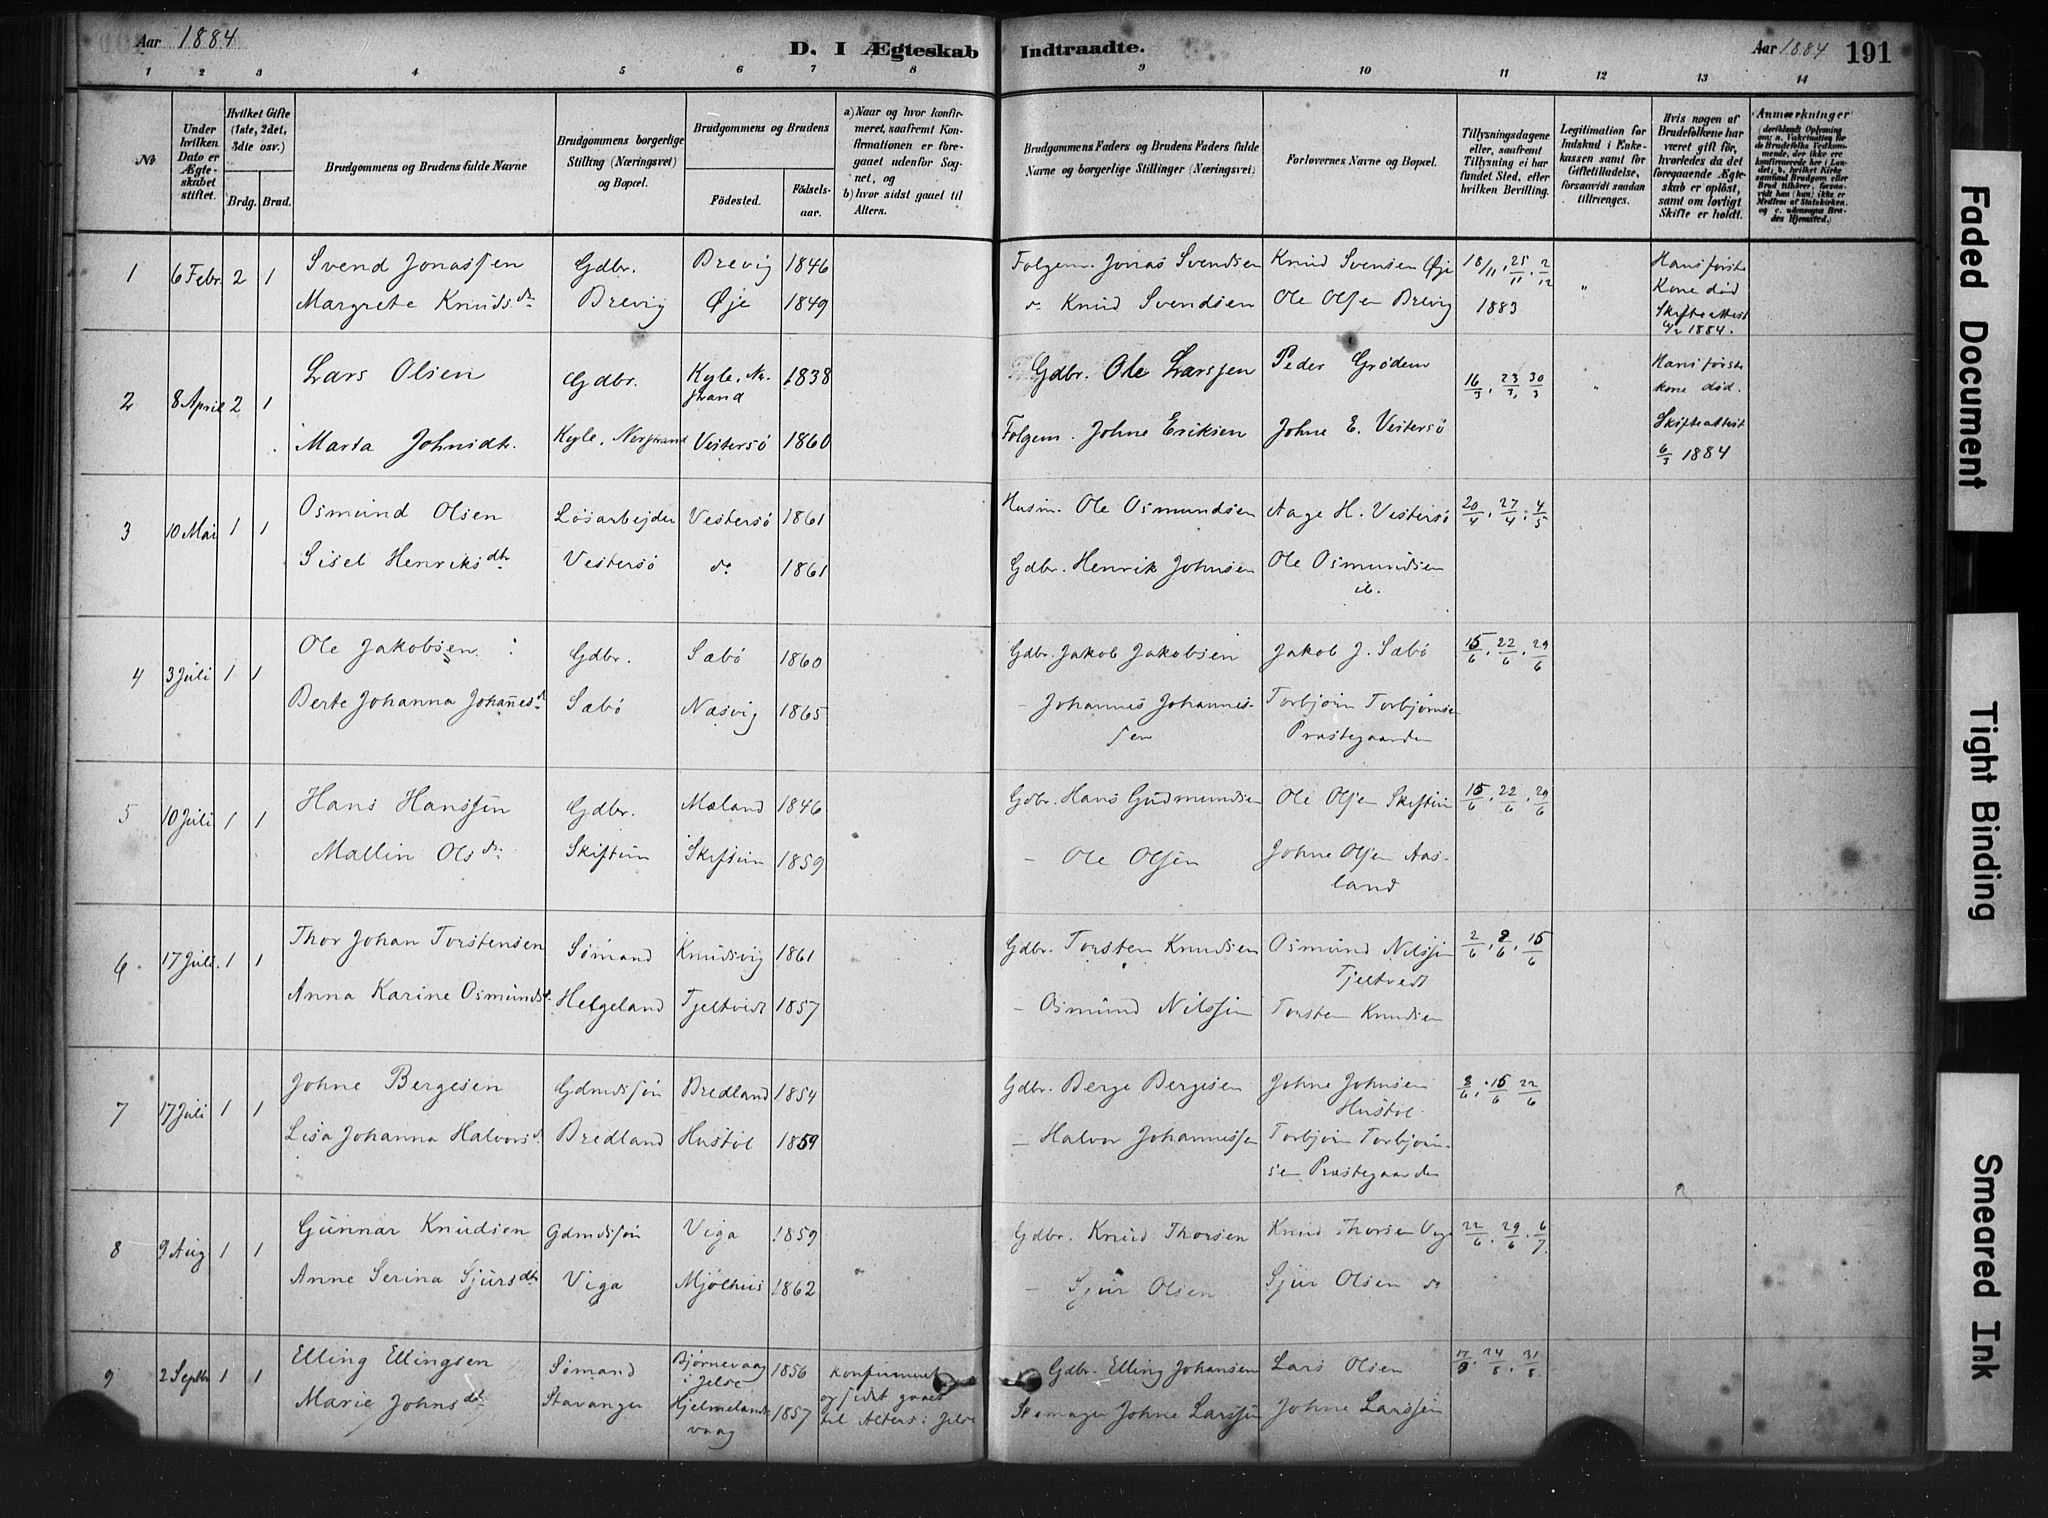 Aar 1884
D. I Ægteskab Indtraadte.
Aar 1884 191
1 2 3 4 5 6 7 8 9 10 11 12 13 14
No
Under hvilken Dato er Ægteskabet stiftet.
Hvilket Gifte (1ste, 2det, 3die osv.)
Brdg. Brud.
Brudgommens og Brudens fulde Navne
Brudgommens borgerlige Stilling (Næringsvei) og Bopæl.
Brudgommens og Brudens
Födested. Födselsaar.
a) Naar og hvor konfirmeret, saafremt Konfirmationen er foregaaet udenfor Sognet, og
b) hvor sidst gaaet til Alters.
Brudgommens Faders og Brudens Faders fulde Navne og borgerlige Stillinger (Næringsvei)
Forlovernes Navne og Bopæl.
Tillysningsdagene eller, saafremt Tillysning ei har fundet Sted, efter hvilken Bevilling.
Legitimation for Indskud i Enkekassen samt for Giftetilladelse, forsaavidt saadan tiltrænges.
Hvis nogen af Brudefolkene har været gift för, hvorledes da det foregaaende Ægteskab er oplöst, samt om lovligt Skifte er holdt.
Anmærkninger
1 6 Febr. 2 1 Svend Jonassen Gdbr. Brevig 1846 Folgem. Jonas Svendsen Knud Svensen Øje 18/11, 25/11, 2/12 " Hans første
Margrete Knudsdr. Brevig Øje 1849 do Knud Svendsen Ole Olsen Brevig 1883 Kone død
Skifteattest
1884.
2 8 April 2 1 Lars Olsen Gdbr. Kyle, Nerstrand 1838 Gdbr. Ole Larssen Peder Grødem 16/3, 23/3, 30/3 " Hans første
kone død.
Marta Johnsdtr. Kyle, Nerstrand Vestersø 1860 Folgem. Johne Eriksen Johne E. Vestersø Skifteattest
6/3 1884
3 10 Mai 1 1 Osmund Olsen Løsarbejder Vestersø 1861 Husm. Ole Osmundsen Aage H. Vestersø 20/4, 27/4, 4/5
Sisel Henriksdtr Vestersø do 1861 Gdbr. Henrik Johnsen Ole Osmundsen
ib.
4 3 Juli 1 1 Ole Jakobsen Gdbr. Sæbø 1860 Gdbr. Jakob Jakobsen Jakob J. Sæbø 15/6, 22/6, 29/6
Berte Johanna Johañesdr. Sæbø Næsvig 1865 – Johannes Johannessen Torbjörn Torbjörnsen
Præstegaarden
5 10 Juli 1 1 Hans Hanssen Gdbr. Mæland 1846 Gdbr. Hans Gudmundsen Ole Olsen Skiftun 15/6, 22/6, 29/6
Mallin Olsdr. Skiftun Skiftun 1859 – Ole Olsen Johne Olsen Aasland
6 17 Juli. 1 1 Thor Johan Torstensen Sømand Knudsvig 1861 Gdbr. Torsten Knudsen Osmund Nilssen 2/6, 8/6, 15/6
Tjeltvedt
Anna Karine Osmundsd. Helgeland Tjeltvedt 1857 – Osmund Nilssen Torsten Knudsen
7 17 Juli 1 1 Johne Bergesen Gdmdssøn Bredland 1854 Gdbr. Berge Bergesen Johne Johnsen 8/6, 15/6 22/6
Hustøl
Lisa Johanna Halvorsd. Bredland Hustøl 1859 – Halvor Johannessen Torbjörn Torbjörnsen Præstegaarden
8 9 Aug 1 1 Gunnar Knudsen Gdmdssøn Viga 1859 Gdbr. Knud Thorsen Knud Thorsen Viga 22/6, 29/6, 6/7
Anne Serina Sjursdtr Viga Mjølhus 1862 – Sjur Olsen Sjur Olsen do
9 2 Septbr 1 1 Elling Ellingsen Sømand Bjørnevaag i Jelse 1856 konfirmeret Gdbr. Elling Johansen Lars Olsen 17/8, 24/8, 31/8
Marie Johnsdtr Stavanger Hjelmelandsvaag 1857 og sidst gaaet til Alters i Jelse Johne Larssen Johne Larssen
Faded Document
Tight Binding
Smeared Ink